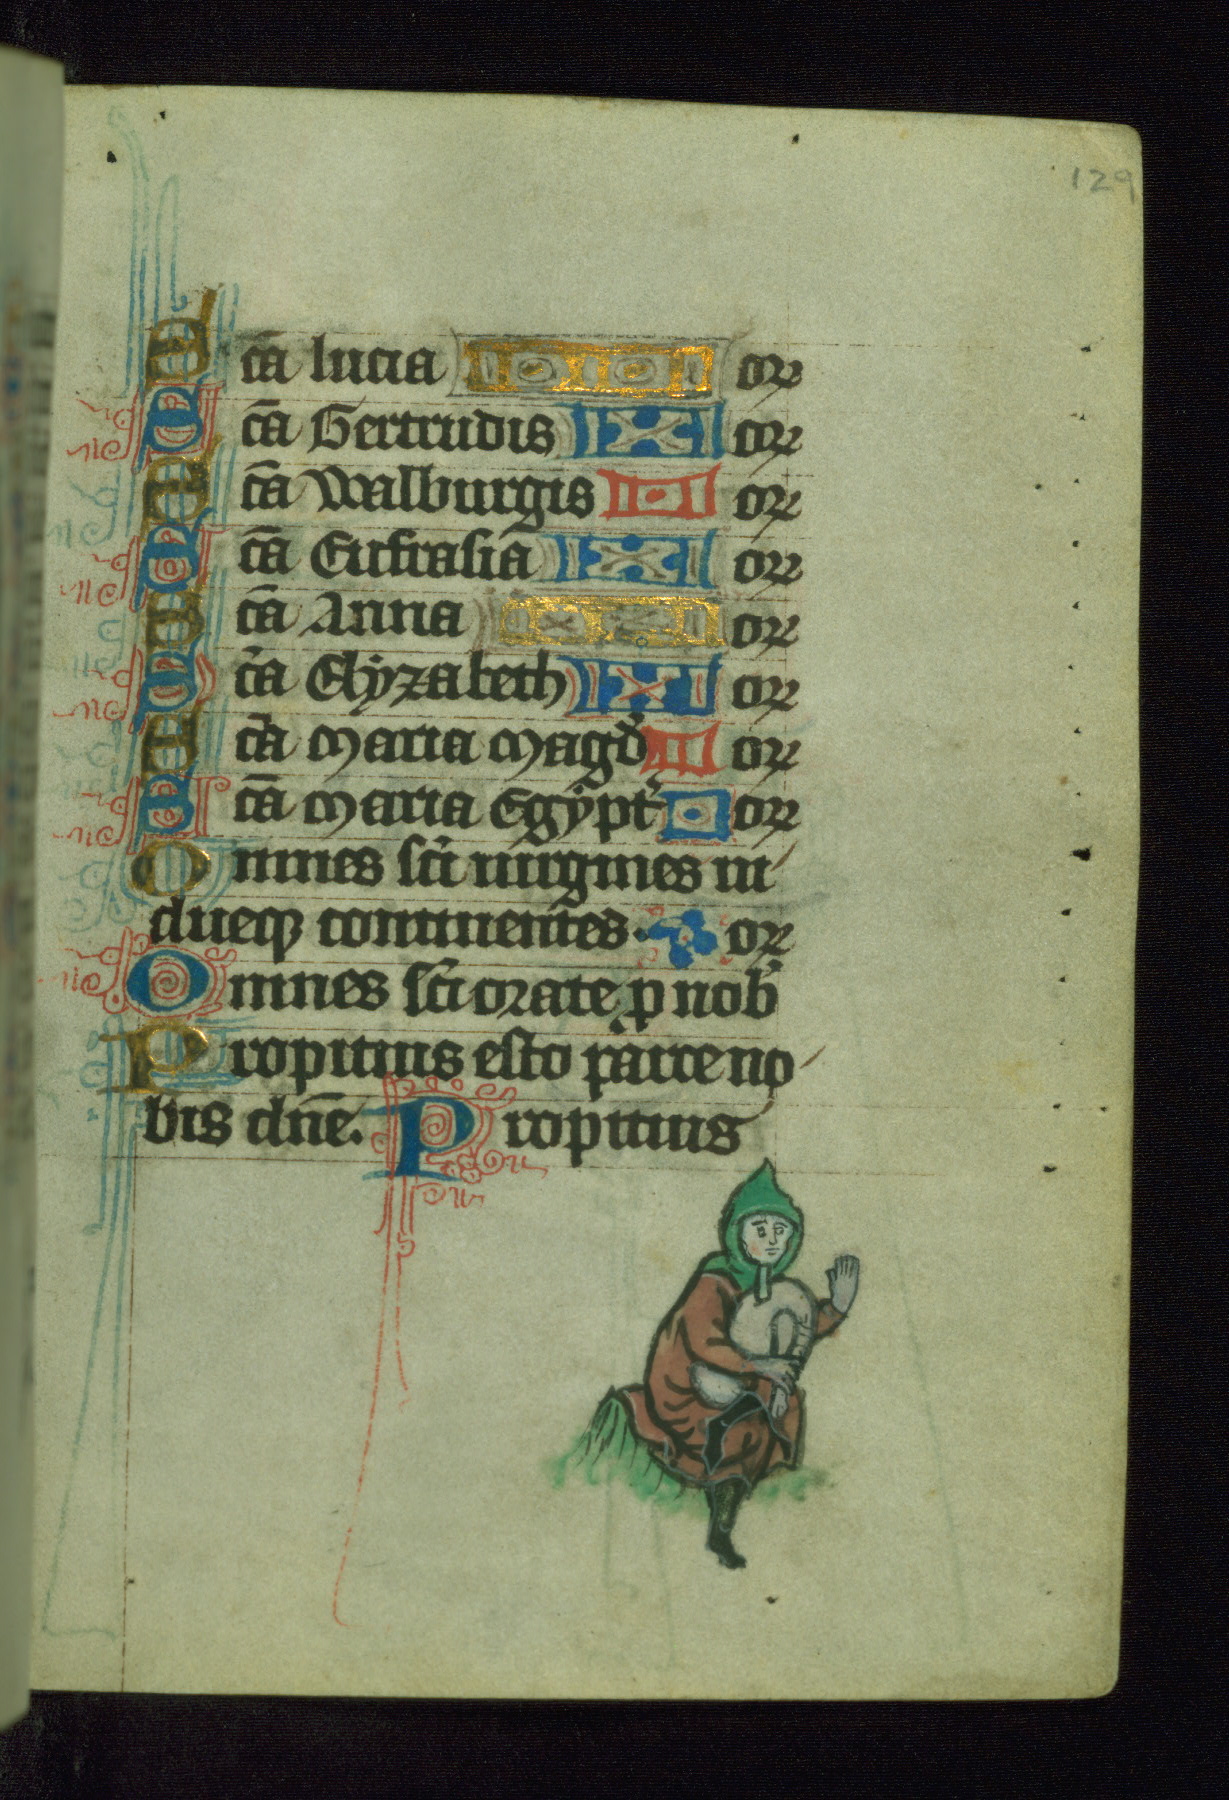 129
Scā lucia or
Scā Gertrudis or
Scā Walburgis or
Scā Eufrasia or
Scā Anna or
Scā Elyzabeth or
Scā Maria Magd' or
Scā Maria Egypt' or
Omnes sc̄i uirgines ui
dueqꝫ continentes. or
Omnes sc̄i orate p nob'
Propitius esto parce no
bis dn̄e. Propitius